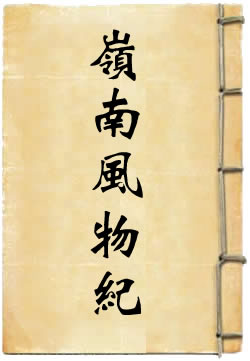 嶺南風物紀